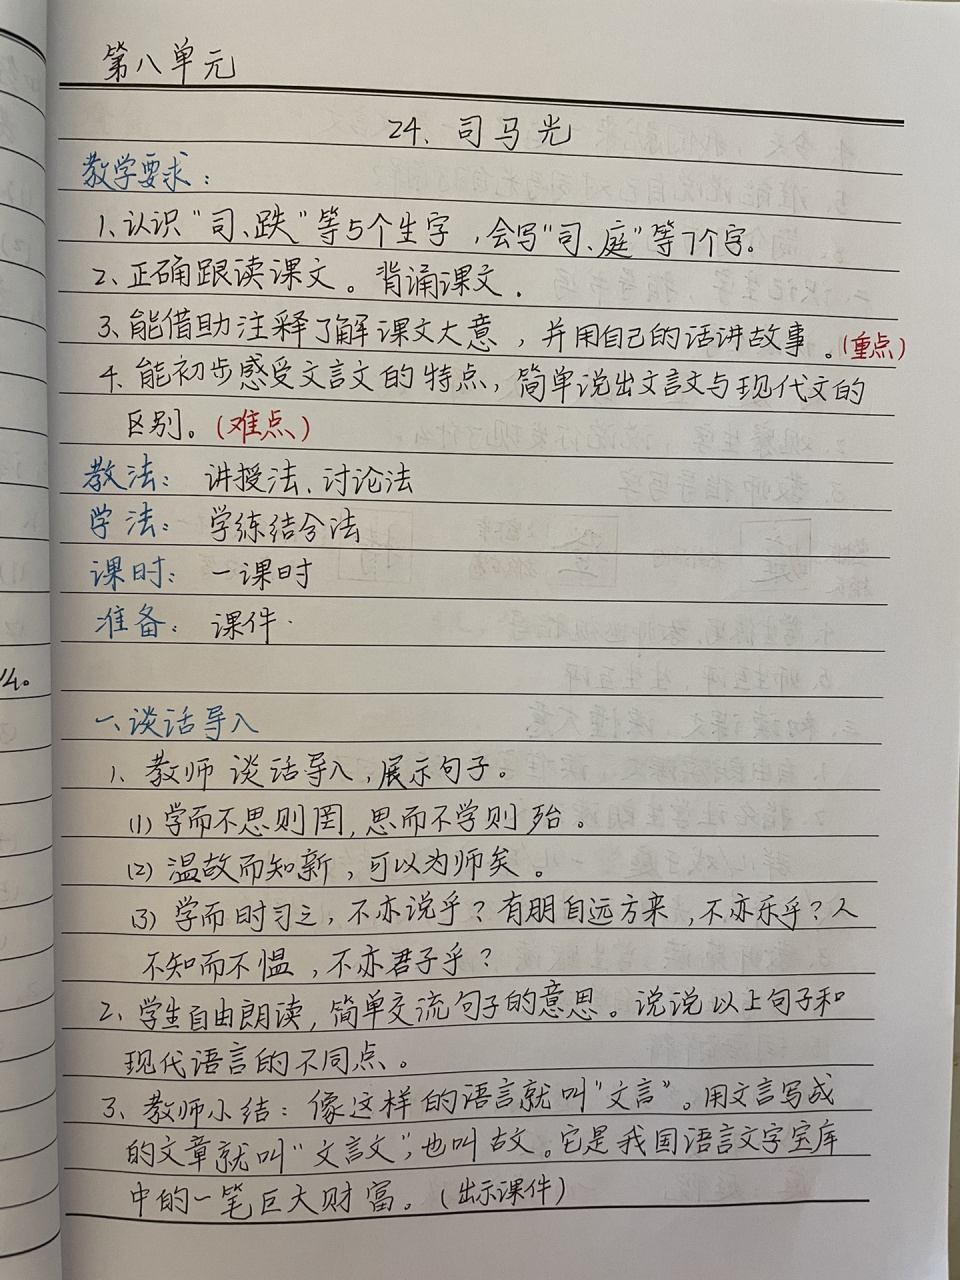 第八单元
24、司马光
教学要求：
1、认识“司、跌”等5个生字，会写“司、庭”等7个字。
2、正确跟读课文。背诵课文.
3、能借助注释了解课文大意，并用自己的话讲故事。(重点)
4、能初步感受文言文的特点，简单说出文言文与现代文的
区别。(难点)
教法：讲授法、讨论法
学法：学练结合法
课时：一课时
准备：课件.
一、谈话导入
1、教师谈话导入，展示句子。
(1)学而不思则罔，思而不学则殆。
(2)温故而知新，可以为师矣。
(3)学而时习之，不亦说乎？有朋自远方来，不亦乐乎？人
不知而不愠，不亦君子乎？
2、学生自由朗读，简单交流句子的意思。说说以上句子和
现代语言的不同点。
3、教师小结：像这样的语言就叫“文言”。用文言写成
的文章就叫“文言文”，也叫古文。它是我国语言文字宝库
中的一笔巨大财富。(出示课件)